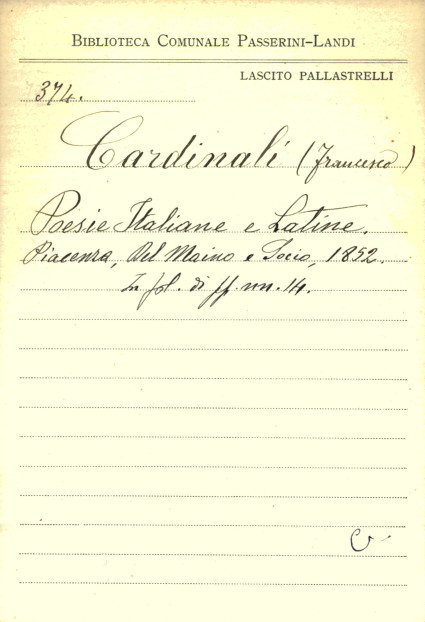 BIBLIOTECA COMUNALE PASSERINI-LANDI
LASCITO PALLASTRELLI
374.
Cardinali (Francesco)
Poesie Italiane e Latine.
Piacenza, Del Maino e Socio, 1852.
In fol. di pp. nn. 14.